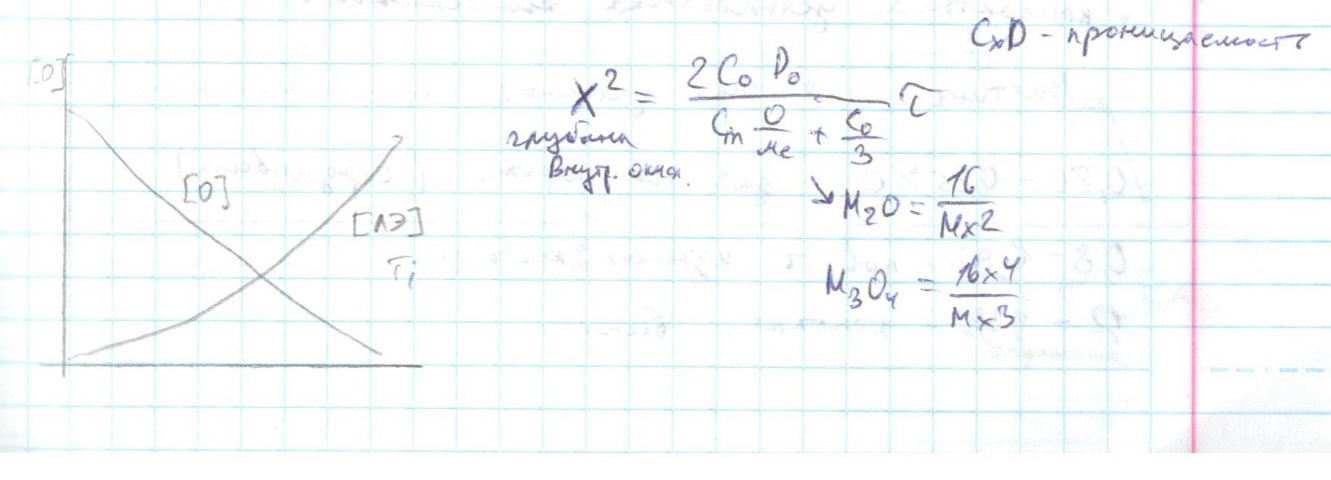 C×D - проницаемость
[O]
X² = \frac{2 C₀ D₀}{Cm \frac{O}{Me} + \frac{C₀}{3}} τ
глубина
Внутр. окисл.
[O]
[ЛЭ]
Ti
↘ M₂O = \frac{16}{M×2}
M₃O₄ = \frac{16×4}{M×3}